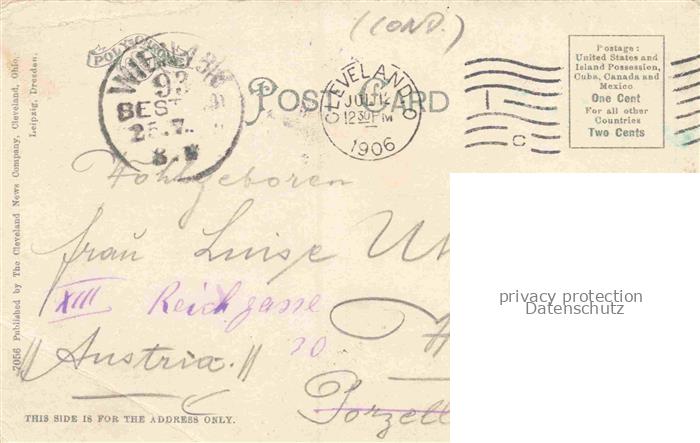 (COND.)
POLYCHROME
POST CARD
WIEN
93
BEST
25.7.
8.V
CLEVELAND, O
JUL 14
12 30 PM
1906
Postage:
United States and
Island Possession,
Cuba, Canada and
Mexico
One Cent
For all other
Countries
Two Cents
I
C
7056 Published by The Cleveland News Company, Cleveland, Ohio.
Leipzig, Dresden.
Wohlgeboren
frau Luise
XIII Reichgasse
30
// Austria. //
Porzell
THIS SIDE IS FOR THE ADDRESS ONLY.
privacy protection
Datenschutz